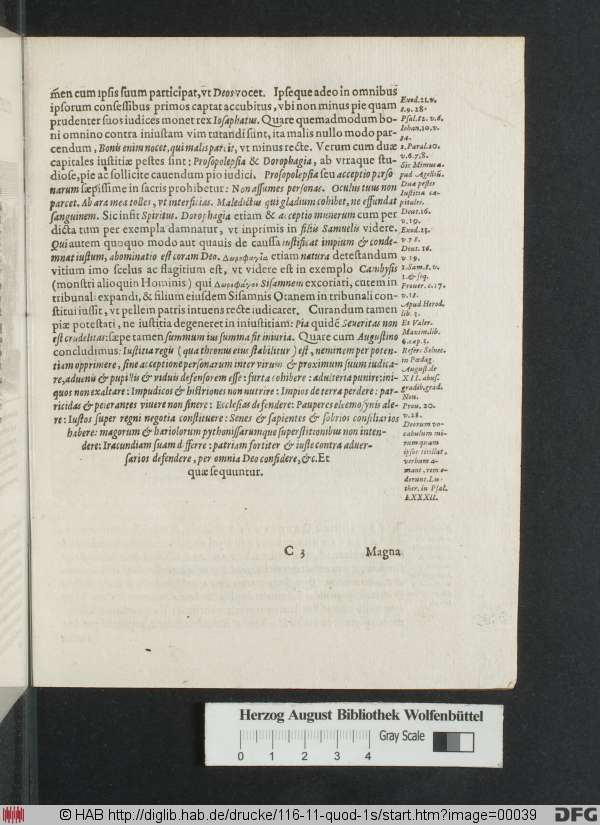 m̃en cum ipsis suum participat, vt Deos vocet. Ipseque adeo in omnibus
ipsorum consessibus primos captat accubitus, vbi non minus pie quam
prudenter suos iudices monet rex Iosaphatus. Quare quemadmodum bo-
ni omnino contra iniustam vim tutandi sunt, ita malis nullo modo par-
cendum, Bonis enim nocet, qui malis parcit, vt minus recte. Verum cum duæ
capitales iustitiæ pestes sint: Prosopolepsia & Dorophagia, ab vtraque stu-
diose, pie ac sollicite cauendum pio iudici. Prosopolepsia seu acceptio perso
narum sæpissime in sacris prohibetur: Non assumes personas. Oculus tuus non
parcet. Ab ara mea tolles, vt interficias. Maledictus qui gladium cohibet, ne effundat
sanguinem. Sic infit Spiritus. Dorophagia etiam & acceptio munerum cum per
dicta tum per exempla damnatur, vt inprimis in filiis Samuelis videre.
Qui autem quoquo modo aut quauis de caussa iustificat impium & conde-
mnat iustum, abominatio est coram Deo. Δωροφαγία etiam natura detestandum
vitium imo scelus ac flagitium est, vt videre est in exemplo Cambysis
(monstri alioquin Hominis) qui Δωροφάγοι Sisamnem excoriati, cutem in
tribunali expandi, & filium eiusdem Sisamnis Otanem in tribunali con-
stitui iussit, vt pellem patris intuens recte iudicaret. Curandum tamen
piæ potestati, ne iustitia degeneret in iniustitiam: Pia quidē Seueritas non
est crudelitas: sæpe tamen summum ius summa fit iniuria. Quare cum Augustino
concludimus: Iustitia regis (qua thronus eius stabilitur) est, neminem per poten-
tiam opprimere, sine acceptione personarum inter virum & proximum suum iudica-
re, aduenis & pupillis & viduis defensorem esse: furta cohibere: adulteria punire: ini-
quos non exaltare: Impudicos & histriones non nutrire: Impios de terra perdere: par-
ricidas & peierantes viuere non sinere: Ecclesias defendere: Pauperes eleemosynis ale-
re: Iustos super regni negotia constituere: Senes & sapientes & sobrios consiliarios
habere: magorum & hariolorum pythonissarumque superstitionibus non inten-
dere: Iracundiam suam differre: patriam fortiter & iuste contra aduer-
sarios defendere, per omnia Deo confidere, &c. Et
quæ sequuntur.
Exod. 21. v.
8. 9. 28.
Psal. 82. v. 6.
Iohan. 10. v.
34.
2. Paral. 20.
v. 6. 7. 8.
Sic Mimus a-
pud Agelliū.
Duæ pestes
Iustitiæ ca-
pitales.
Deut. 16.
v. 19.
Exod. 23.
v. 7 8.
Deut. 16.
v. 19.
1. Sam. 8. v.
1. & seq.
Prouer. c. 17.
v. 15.
Apud Herod.
lib. 5.
Et Valer.
Maxim. lib.
6. cap. 3.
Refer: Seluet.
in Pædag
August. de
XII. abus.
gradib. grad.
Non.
Prou. 20.
v. 28.
Deorum vo-
cabulum mi-
rum quam
ipsos titillat,
verbum a-
mant, rem o-
derunt. Lu-
ther. in Psal.
LXXXII.
C 3 Magna
Herzog August Bibliothek Wolfenbüttel
Gray Scale
0 1 2 3 4
© HAB http://diglib.hab.de/drucke/116-11-quod-1s/start.htm?image=00039
DFG